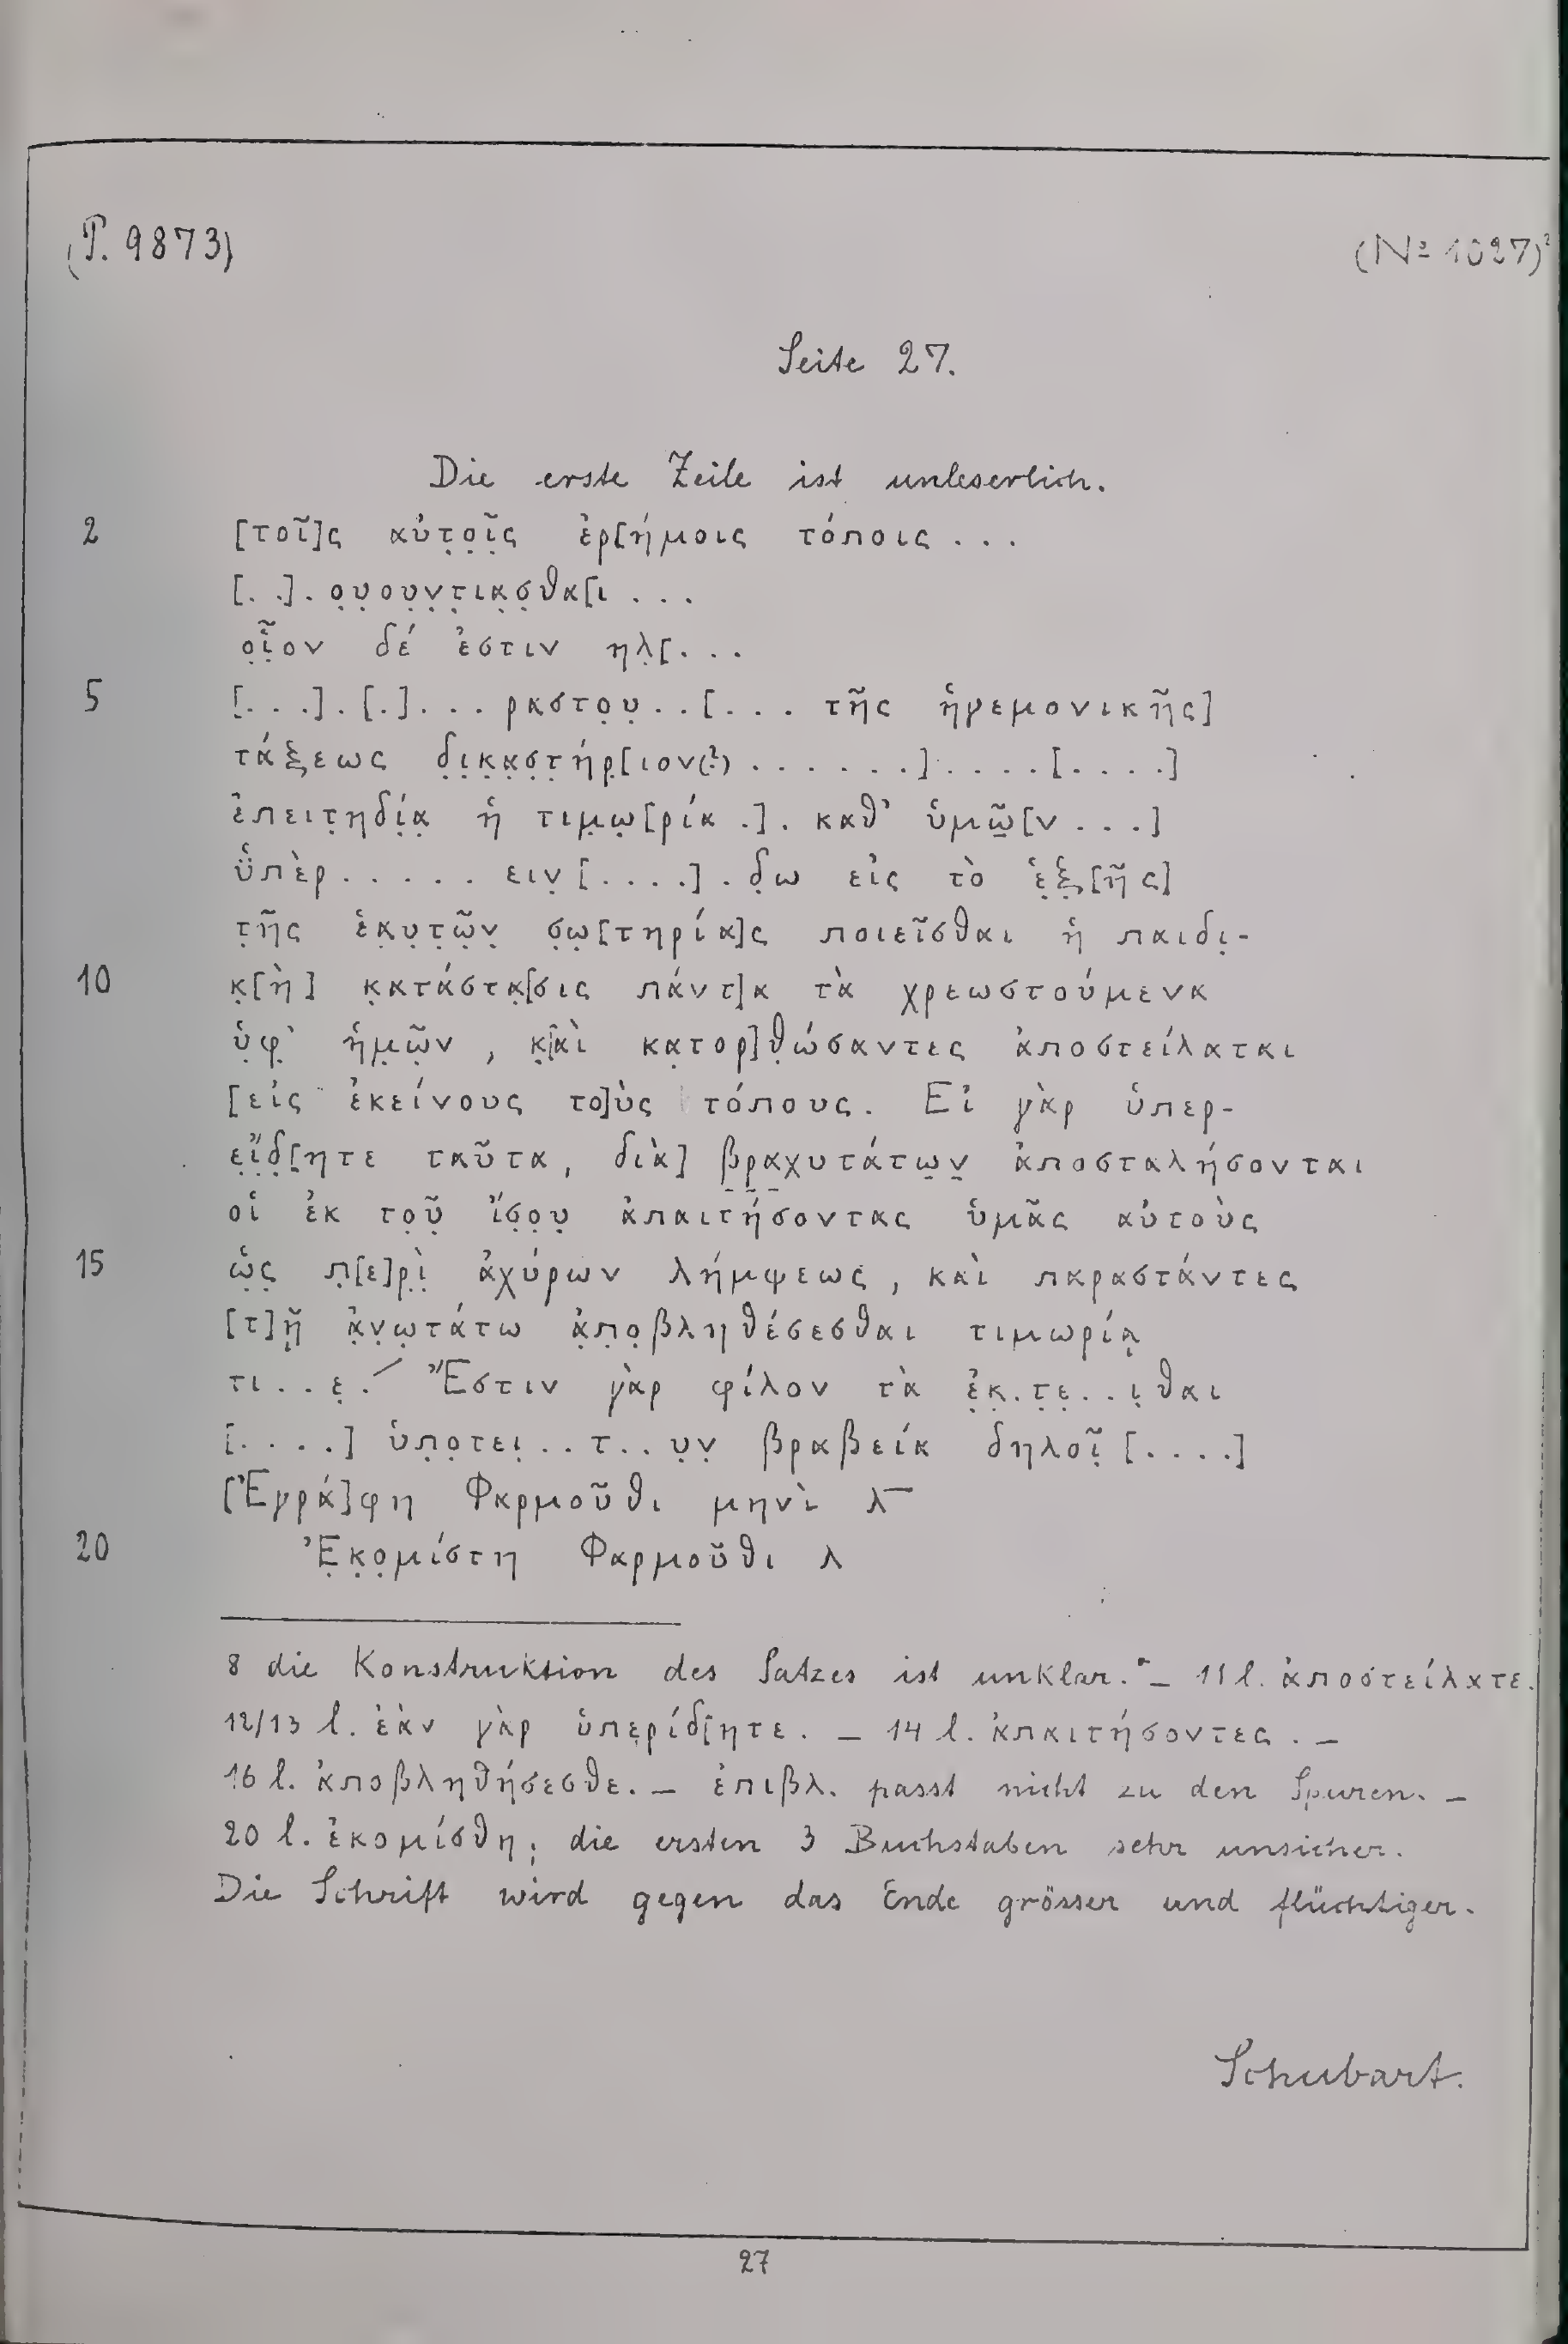 (P. 9873)
(Nº 1027)²
Seite 27.
Die erste Zeile ist unleserlich.
2 [τοῖ]ς αὐτ̣ο̣ῖ̣ς ἐρ[ήμοις τόποις ...
[. .]. ο̣υ̣ο̣υ̣ν̣τ̣ικ̣σ̣θα[ι ...
ο̣ἷ̣ον δέ ἐστιν ηλ̣[...
5 [...].[.]... ραστο̣υ̣..[... τῆς ἡγεμονικῆς]
τάξεως δ̣ι̣κ̣α̣σ̣τ̣ήρ̣[ιον(?) ......]....[....]
ἐπειτ̣ηδί̣α̣ ἡ τιμ̣ω̣[ρία .]. καθ' ὑμῶ̣[ν ...]
ὑ̈πὲρ..... ειν̣[....].δ̣ω εἰς τὸ ἑ̣ξ̣[ῆς]
τ̣ῆς ἑα̣υ̣τ̣ῶ̣ν̣ σ̣ω̣[τηρία]ς ποιεῖσθαι ἡ παιδι̣-
10 κ̣[ὴ] κ̣ατάστα̣[σις πάντ]α τὰ χρεωστούμενα
ὑ̣φ̣' ἡμ̣ῶ̣ν, κ̣[αὶ κα̣τορ]θ̣ώσαντες ἀποστείλαται
[εἰς ἐκείνους το]ὺς τόπους. Εἰ γὰρ ὑπερ-
ε̣ἴ̣δ̣[ητε ταῦτα, διὰ] β̣ρ̣α̣χυτάτω̣ν̣ ἀποσταλήσονται
οἱ ἐκ το̣ῦ̣ ἴσ̣ο̣υ̣ ἀπαιτήσοντας ὑμᾶς αὐτοὺς
15 ὡ̣ς̣ π̣[ε]ρ̣ὶ̣ ἀχύρων λήμψεως, καὶ παραστάντες
[τ]ῇ̣ ἀ̣ν̣ω̣τάτω ἀ̣π̣ο̣βληθέσεσθαι τιμωρίᾳ
τι..ε̣.⁄ Ἔστιν γὰρ φίλον τὰ ἐ̣κ̣.τ̣ε̣..ι̣θαι
[....] ὑπ̣ο̣τει̣..τ..υ̣ν̣ βραβεία δηλοῖ̣ [....]
[Ἐγρά]φη Φαρμοῦθι μηνὶ λ̅
20 Ἐ̣κ̣ο̣μίστη Φαρμοῦθι λ
8 die Konstruktion des Satzes ist unklar. – 11 l. ἀποστείλατε.
12/13 l. ἐὰν γὰρ ὑπε̣ρίδ[ητε. – 14 l. ἀπαιτήσοντες. –
16 l. ἀποβληθήσεσθε. – ἐπιβλ. passt nicht zu den Spuren. –
20 l. ἐκομίσθη; die ersten 3 Buchstaben sehr unsicher.
Die Schrift wird gegen das Ende grösser und flüchtiger.
Schubart.
27